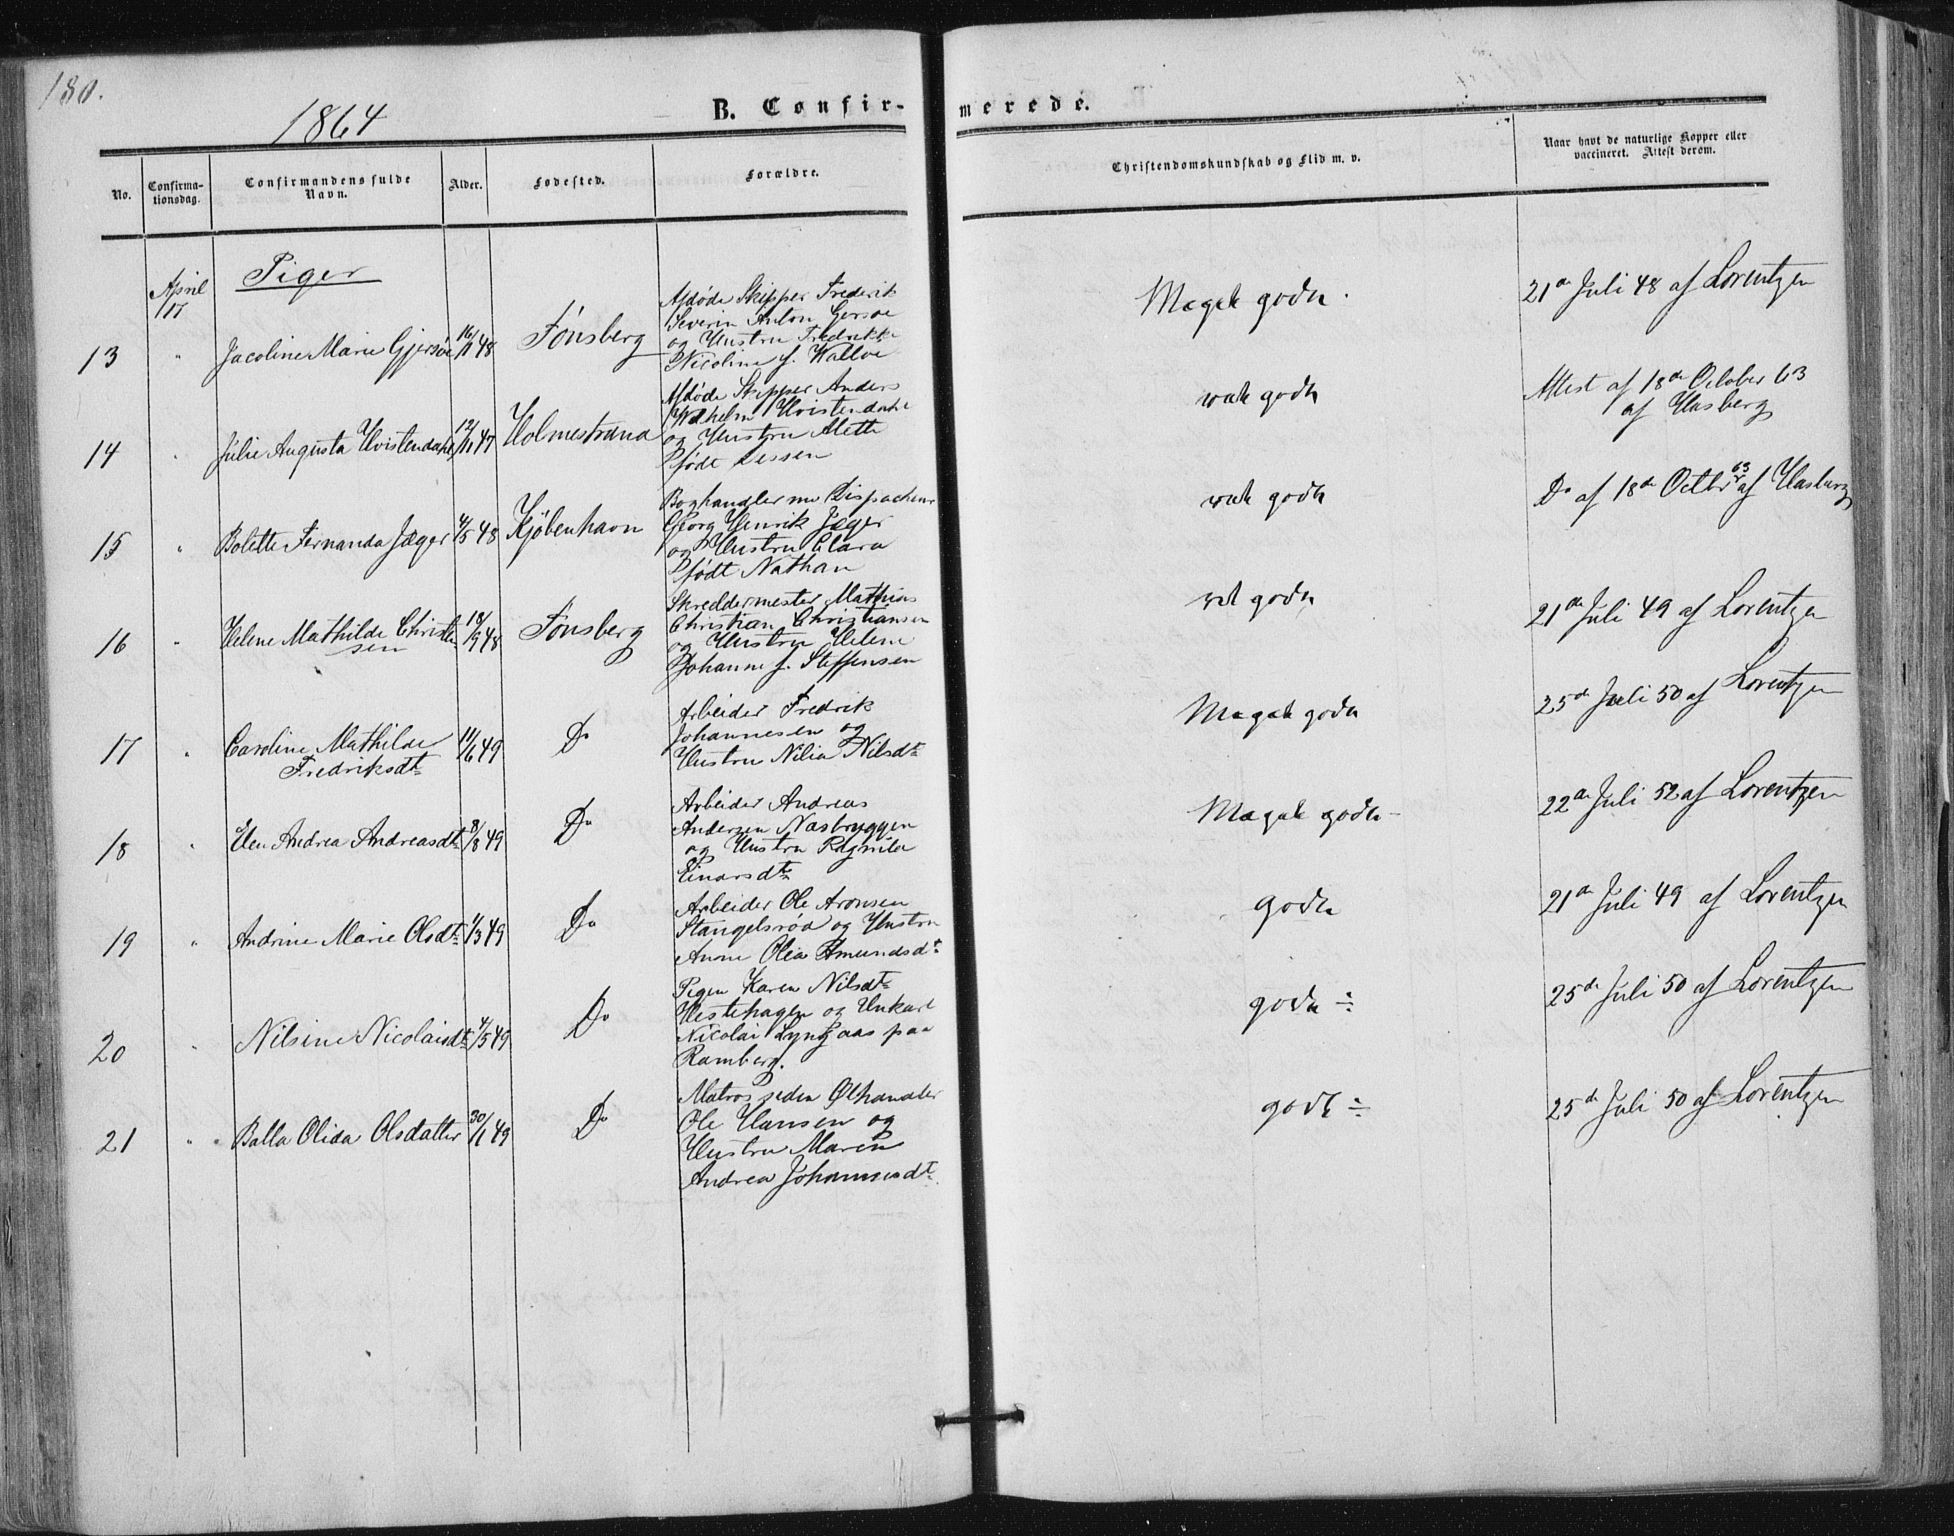 180.
1864
B. Confir-
merede.
No.
Confirma-
tionsdag.
Confirmandens fulde
Navn.
Alder.
Fødested.
Forældre.
Christendomskundskab og Flid m. v.
Naar havt de naturlige Kopper eller
vaccineret. Attest derom.
April
17
Piger
13
"
Jacoline Marie Gjersøe
16/11 48
Tønsberg
Afdøde Skipper Frederik
Severin Anton Gersøe
og Hustru Fredrikke
Nicoline f. Walløe
Meget godt.
21de Juli 48 af Lorentzen
14
"
Julie Augusta Hvistendahl
12/11 47
Holmestrand
Afdøde Skipper Anders
Wilhelm Hvistendahl
og Hustru Alette
født Lessen
godt
Attest af 18de October 63
af Hasberg
15
"
Bolette Fernanda Jæger
4/5 48
Kjøbenhavn
Boghandler nu Dispacheur
Georg Henrik Jæger
og Hustru Clara
født Nathan
godt
Do af 18de Octbr 63 af Hasberg
16
"
Helene Mathilde Christen
sen
18/9 48
Tønsberg
Skreddermester Mathias
Christian Christiansen
og Hustru Helene
Johanne f. Steffensen
godt
21de Juli 49 af Lorentzen
17
"
Caroline Mathilde
Fredriksdt
11/6 49
Do
Arbeider Fredrik
Johannesen og
Hustru Nilia Nilsdt
Meget godt
25de Juli 50 af Lorentzen
18
"
Elen Andrea Andreasdt
8/8 49
Do
Arbeider Andreas
Andersen Næsbryggen
og Hustru Ragnild
Einarsdt
Meget godt
22de Juli 52 af Lorentzen
19
"
Andrine Marie Olsdt
1/3 49
Do
Arbeider Ole Aronsen
Stangelsrød og Hustru
Anne Olea Amundsdt
godt
21de Juli 49 af Lorentzen
20
"
Nilsine Nicolaisdt
4/5 49
Do
Pigen Karen Nilsdt
Vestehagen og Unkarl
Nicolai Lyngaas paa
Ramberg.
godt ÷
25de Juli 50 af Lorentzen
21
"
Balla Olida Olsdatter
30/1 49
Do
Matros siden Ølhandler
Ole Hansen og
Hustru Maren
Andrea Johannesdt
godt ÷
25de Juli 50 af Lorentzen